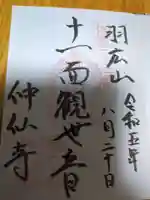 羽広山
令和五年
八月二十日
十一面観世音
仲仙寺